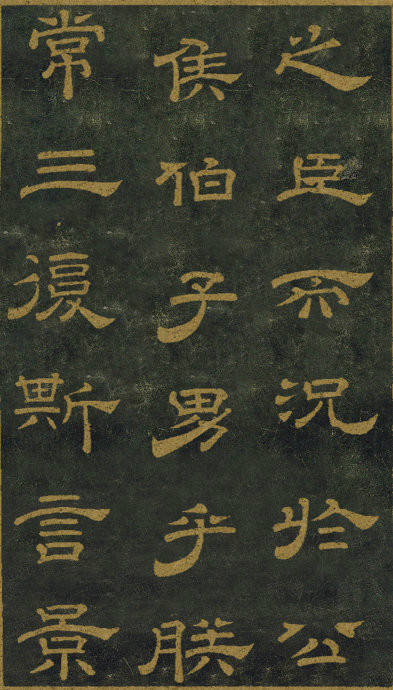 之臣而況於公
侯伯子男乎朕
常三復斯言景